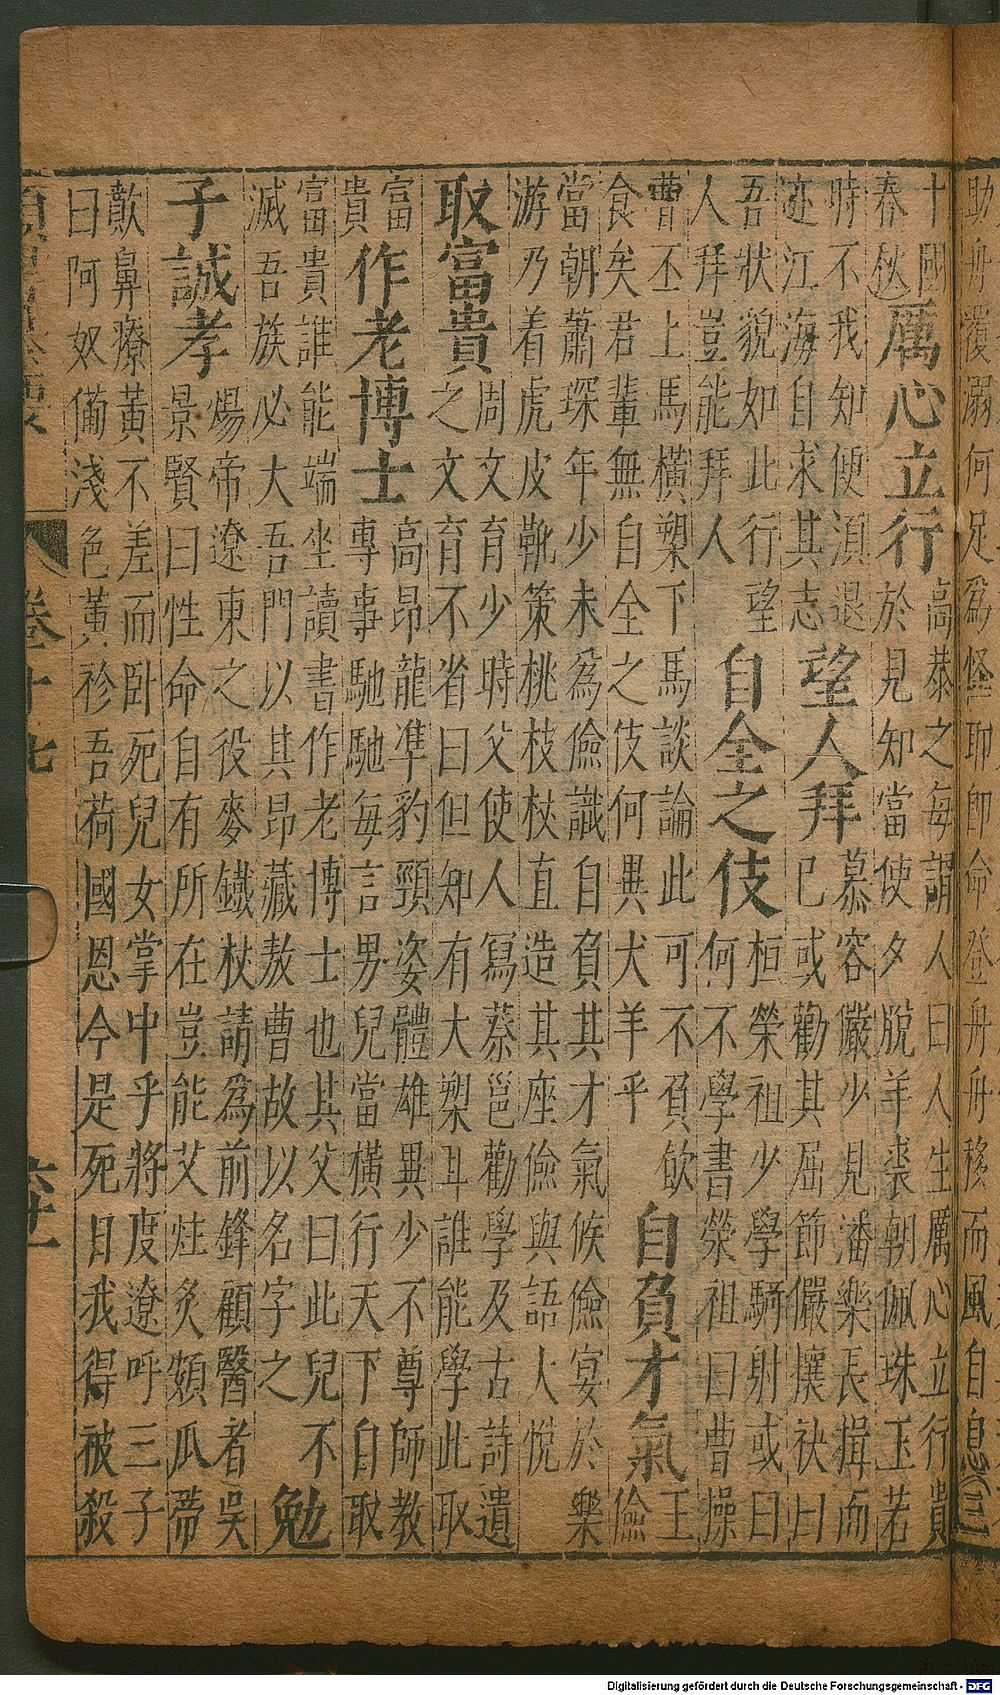 助舟覆溺何足為怪耶即命登舟舟移而風自息
十國
春秋
厲心立行
高恭之每謂人曰人生厲心立行貴
於見知當使夕脫羊裘朝佩珠玉若
時不我知便須退
迹江海自求其志
望人拜
慕容儼少見潘樂長揖而
已或勸其屈節儼攘袂曰
吾狀貌如此行望
人拜豈能拜人
自全之伎
桓榮祖少學騎射或曰
何不學書榮祖曰曹操
曹丕上馬橫槊下馬談論此可不負飲
食矣君輩無自全之伎何異犬羊乎
自負才氣
王
儉
當朝蕭琛年少未為儉識自負其才氣候儉宴於樂
游乃着虎皮靴策桃枝杖直造其座儉與語大悅
取富貴
周文育少時父使人寫蔡邕勸學及古詩遺
之文育不省曰但知有大槊耳誰能學此取
富
貴
作老博士
高昂龍準豹頸姿體雄異少不尊師教
專事馳馳每言男兒當橫行天下自取
富貴誰能端坐讀書作老博士也其父曰此兒不
滅吾族必大吾門以其昂藏敖曹故以名字之
勉
子誠孝
煬帝遼東之役麥鐵杖請為前鋒顧醫者吳
景賢曰性命自有所在豈能艾炷灸頞瓜蒂
歕鼻療黃不差而卧死兒女掌中乎將度遼呼三子
曰阿奴備淺色黃袗吾荷國恩今是死日我得被殺
卷十七
六十一
Digitalisierung gefördert durch die Deutsche Forschungsgemeinschaft - DFG